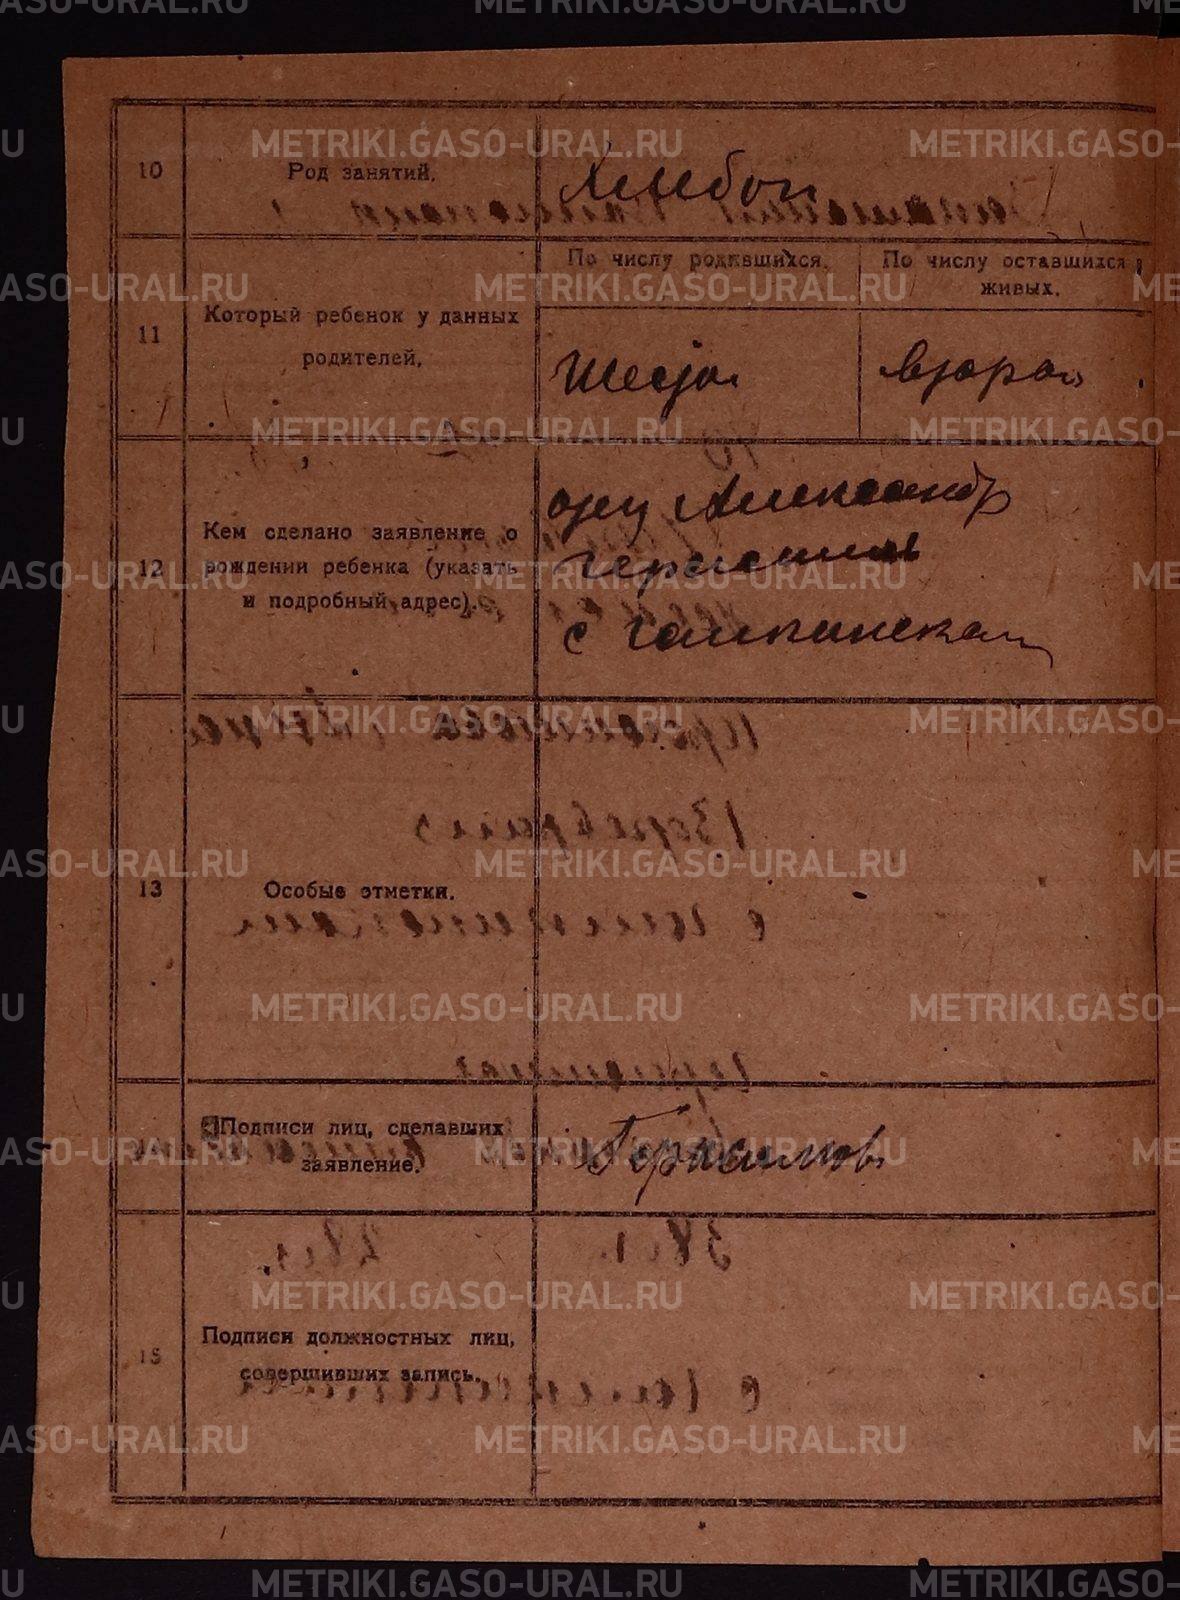 10
Род занятий.
Хлебоп
11
Который ребенок у данных
родителей.
По числу родившихся.
По числу оставшихся
живых.
Шестой
второй
12
Кем сделано заявление о
рождении ребенка (указать
и подробный адрес).
отец Александр
Герасимов
с Галкинском
13
Особые отметки.
14
Подписи лиц, сделавших
заявление.
Герасимов
15
Подписи должностных лиц,
совершивших запись.
METRIKI.GASO-URAL.RU